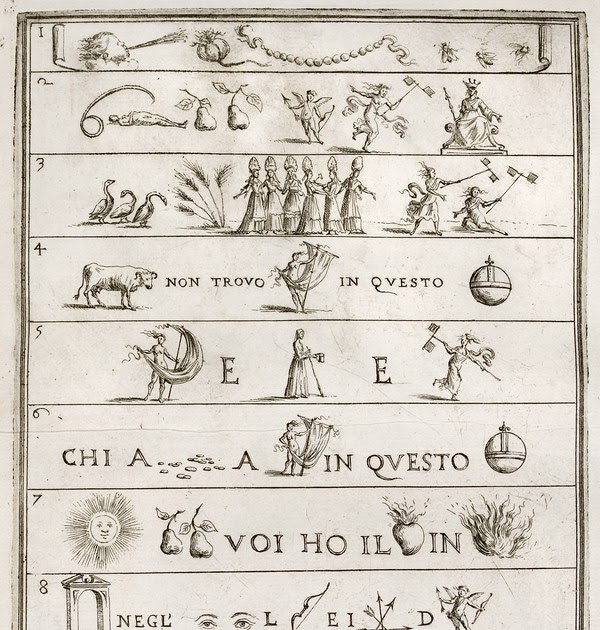 1
2
3
4 NON TROVO IN QVESTO
5 E E
6 CHI A A IN QVESTO
7 VOI HO IL IN
8 NEGL' L E I D